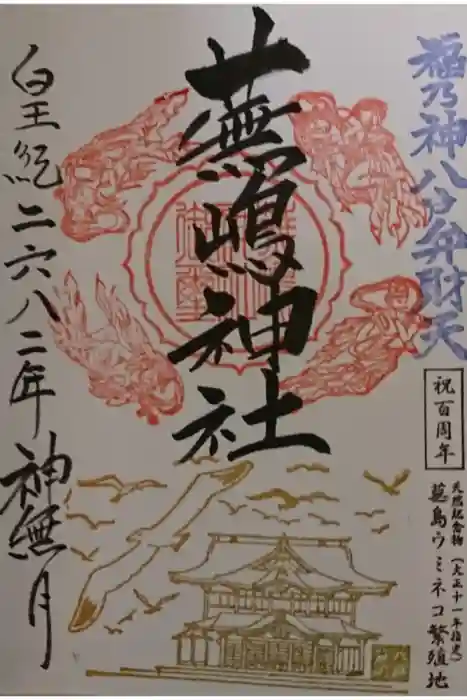 福乃神八方弁財天
祝百周年
天然記念物(大正十一年指定)
蕪島ウミネコ繁殖地
蕪嶋神社
皇紀二六八二年 神無月